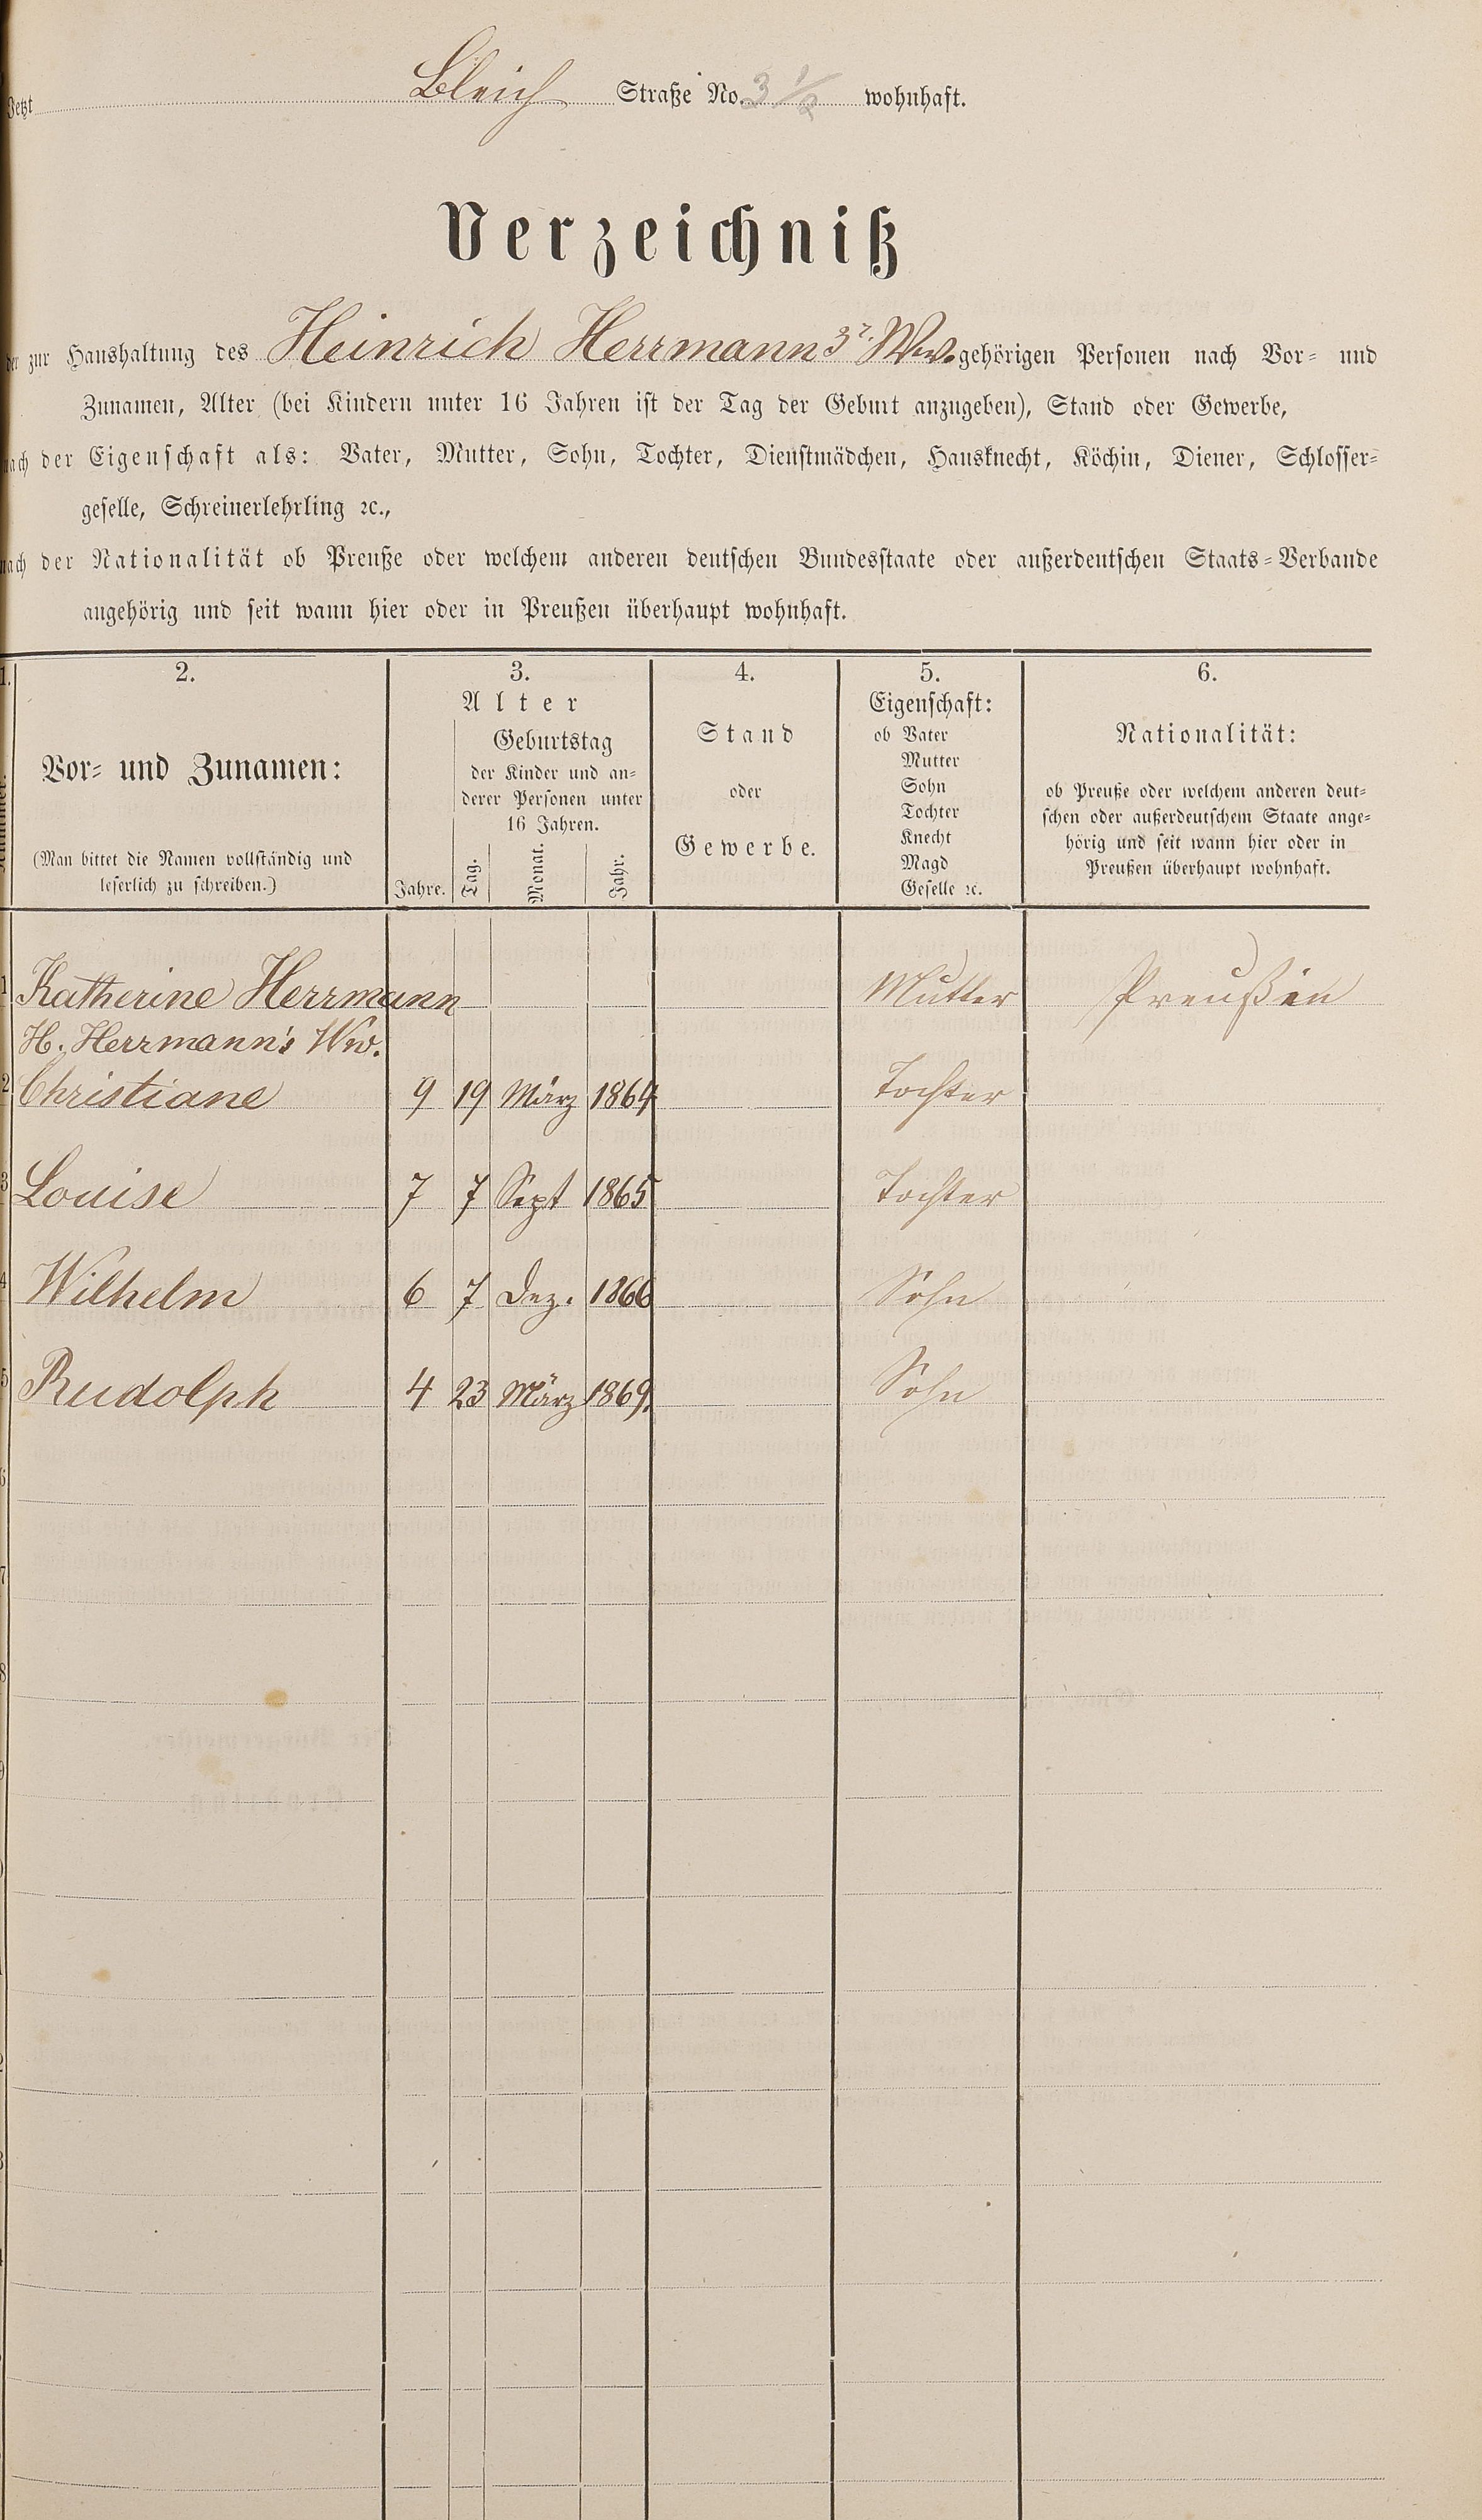 Jetzt Bleich Straße No. 3 1/2 wohnhaft.
Verzeichniß
der zur Haushaltung des Heinrich Herrmann 3r Ww. gehörigen Personen nach Vor- und
Zunamen, Alter (bei Kindern unter 16 Jahren ist der Tag der Geburt anzugeben), Stand oder Gewerbe,
nach der Eigenschaft als: Vater, Mutter, Sohn, Tochter, Dienstmädchen, Hausknecht, Köchin, Diener, Schlosser-
geselle, Schreinerlehrling ꝛc.,
nach der Nationalität ob Preuße oder welchem anderen deutschen Bundesstaate oder außerdeutschen Staats-Verbande
angehörig und seit wann hier oder in Preußen überhaupt wohnhaft.
1.
2.
Vor- und Zunamen:
(Man bittet die Namen vollständig und
leserlich zu schreiben.)
3.
Alter
Geburtstag
der Kinder und an-
derer Personen unter
16 Jahren.
Jahre. Tag. Monat. Jahr.
4.
Stand
oder
Gewerbe.
5.
Eigenschaft:
ob Vater
Mutter
Sohn
Tochter
Knecht
Magd
Geselle ꝛc.
6.
Nationalität:
ob Preuße oder welchem anderen deut-
schen oder außerdeutschem Staate ange-
hörig und seit wann hier oder in
Preußen überhaupt wohnhaft.
1 Katherine Herrmann Mutter Preußin
H. Herrmann's Ww.
2 Christiane 9 19 März 1864 Tochter
3 Louise 7 7 Sept 1865 Tochter
4 Wilhelm 6 7 Dez. 1866 Sohn
5 Rudolph 4 23 März 1869. Sohn
6
7
8
9